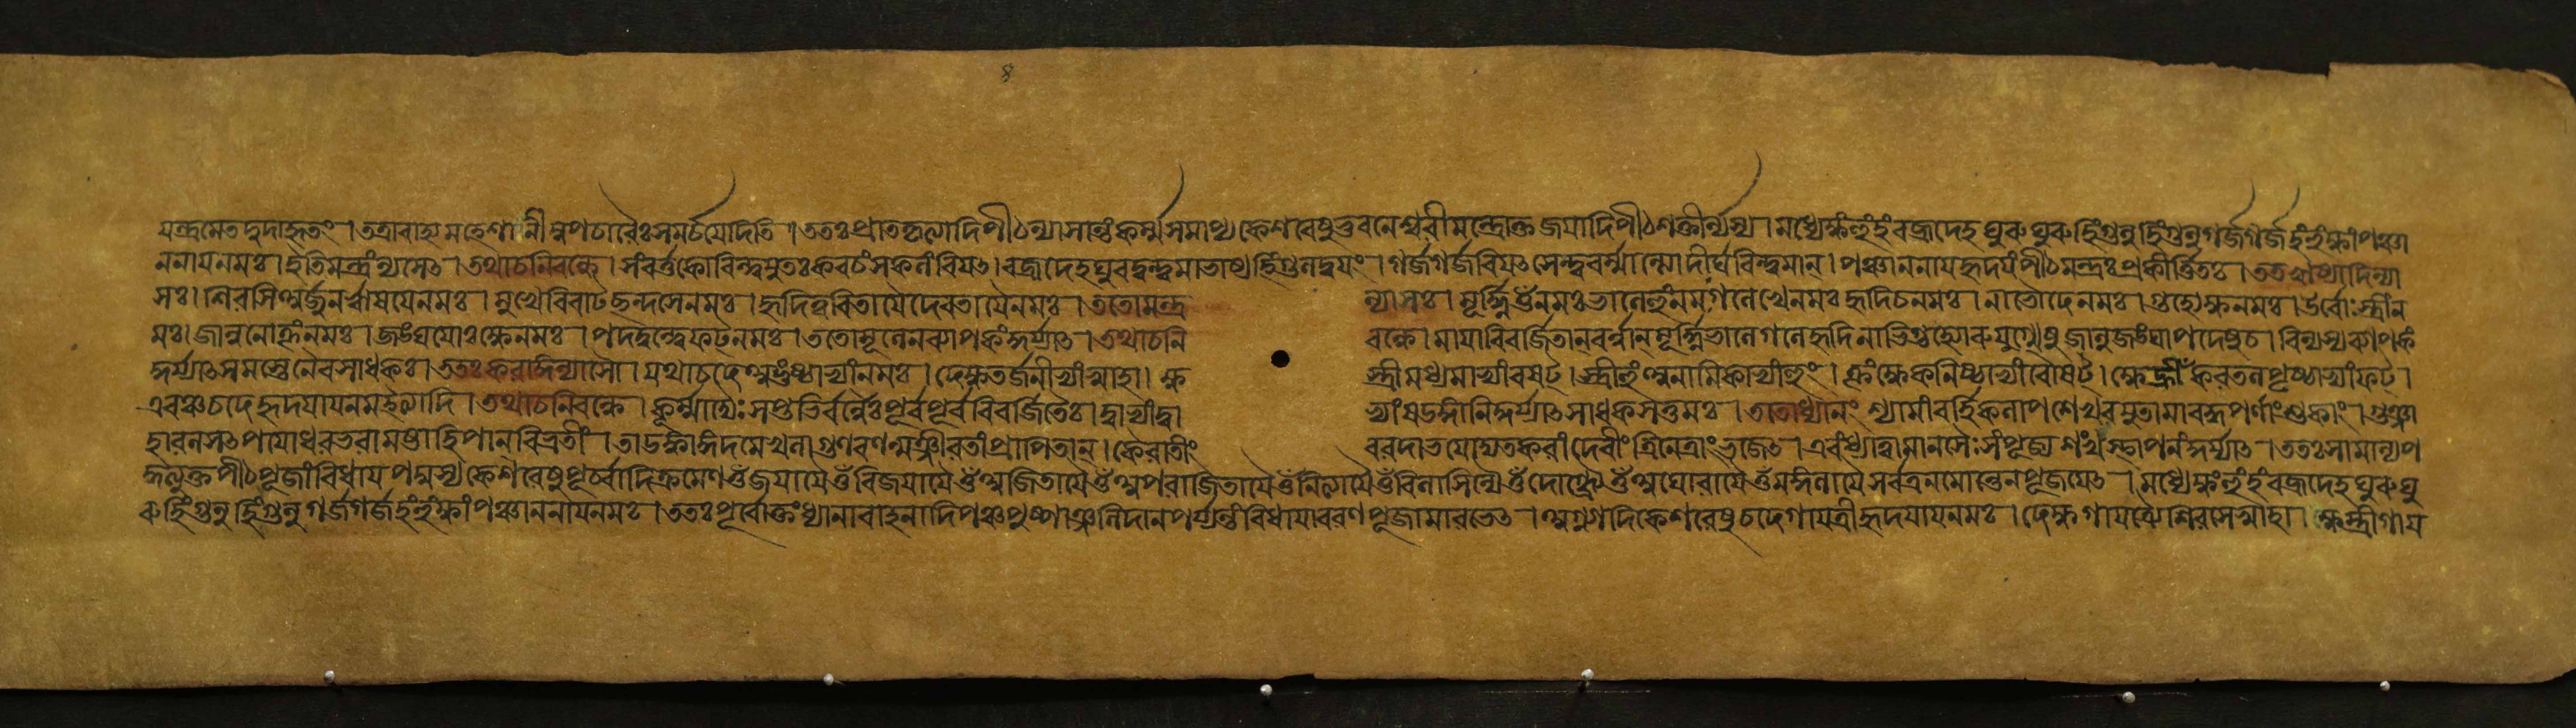 যন্ত্রমেতদুদাহৃতং । তত্রাবাহ্য মহেশানীমুপচারৈঃ সমর্চয়েদিতি । ততঃ প্রাতঃকৃত্যাদিপীঠন্যাসান্তং কর্ম্ম সমাপ্য কেশরেষু ভুবনেশ্বরীমন্ত্রোক্তজয়াদিপীঠশক্তীর্ন্যস্য । মধ্যে ক্ষং হুং হং বজ্রদেহ ঘুরু ঘুরু হিংগুলু হিংগুলু গর্জ গর্জ হং হুং ক্ষাং পঞ্চা
ননায় নমঃ । ইতি মন্ত্রং ন্যসেৎ । তথাচ নিবন্ধে । সংবর্ত্তকো বিন্দুযুতঃ কবচং সকলং বিয়ৎ । বজ্রদেহ হিংগুলদ্বয়ং । গর্জ গর্জ বিয়ৎ সেন্দু বর্ম্মান্মোদীর্ঘবিন্দুমান্ । পঞ্চাননায় হৃদয়ং পীঠমন্ত্রঃ প্রকীর্ত্তিতঃ । তত ঋষ্যাদিন্যা
সঃ । শিরসি অর্জুনঋষয়ে নমঃ । মুখে বিরাট্ছন্দসে নমঃ । হৃদি ত্বরিতায়ৈ দেবতায়ৈ নমঃ । ততো মন্ত্র ন্যাসঃ । মূর্দ্ধ্নি নমঃ ভালে হুং নমঃ গলে খে নমঃ হৃদি চ নমঃ । নাভৌ দে নমঃ । গুহ্যে ক্ষ নমঃ । ঊর্বোঃ স্ত্রীং ন
মঃ । জান্বোঃ নমঃ । জঙ্ঘয়োঃ ক্ষে নমঃ । পদদ্বন্দ্বে ফট্ নমঃ । ততো মূলেন ব্যাপকং কুর্য্যাৎ । তথাচ নি বন্ধে । মায়াবিবর্জিতান্ বর্ণান্ মূর্দ্ধ্নি ভালে গলে হৃদি নাভিগুহ্যোরুযুগ্মেষু জানুজঙ্ঘাপদেষু চ । বিন্যস্য ব্যাপকং
কুর্য্যাৎ সমস্তেনৈব সাধকঃ । ততঃ করাঙ্গন্যাসৌ । যথা চ দে অঙ্গুষ্ঠাভ্যাং নমঃ । দে ক্ষ তর্জনীভ্যাং স্বাহা । ক্ষ স্ত্রী মধ্যমাভ্যাং বষট্ । স্ত্রী হুং অনামিকাভ্যাং হুং । ক্ষে কনিষ্ঠাভ্যাং বৌষট্ । ক্ষে করতলপৃষ্ঠাভ্যাং ফট্ ।
এবঞ্চ চ দে হৃদয়ায় নম ইত্যাদি । তথাচ নিবন্ধে । কূর্ম্মাদ্যৈঃ সপ্তভির্বর্ণৈঃ পূর্ব পূর্ব বিবর্জিতৈঃ । দ্বাভ্যাং দ্বা ভ্যাং ষডঙ্গানি কুর্য্যাৎ সাধকসত্তমঃ । ততো ধ্যানং শ্যামাং বর্হিকলাপশেখরযুতামাবদ্ধপর্ণাংশুকাং । গুঞ্জা
হারলসৎপয়োধরভরামষ্টাহিপান্ বিভ্রতীং । তাডঙ্কাঙ্গদমেখলাগুণরণন্মঞ্জীরতাং প্রাপিতান্ । কৈরাতীং বরদাভয়োদ্যতকরাং দেবীং ত্রিনেত্রাং ভজেৎ । এবং ধ্যাত্বা মানসৈঃ সংপূজ্য শংখস্থাপনং কুর্য্যাৎ । ততঃ সামান্যপ
দ্ধত্যুক্তপীঠপূজাং বিধায় পদ্মস্য কেশরেষু পূর্ব্বাদিক্রমেণ ওঁ জয়ায়ৈ ওঁ বিজয়ায়ৈ ওঁ অজিতায়ৈ ওঁ অপরাজিতায়ৈ ওঁ নিত্যায়ৈ ওঁ বিলাসিন্যৈ ওঁ দোগ্ধ্র্যৈ ওঁ অঘোরায়ৈ ওঁ মঙ্গলায়ৈ সর্বত্র নমোন্তেন পূজয়েৎ । মধ্যে ক্ষং হুং হং বজ্রদেহ ঘুরু ঘু
রু হিংগুলু হিংগুলু গর্জ গর্জ হং হুং ক্ষাং পঞ্চাননায় নমঃ । ততঃ পূর্ব্বোক্তং ধ্যানাবাহনাদি পঞ্চপুষ্পাঞ্জলিদানপর্য্যন্তং বিধায়াবরণপূজামারভেৎ । অগ্ন্যাদিকেশরেষু চ দে গায়ত্রী হৃদয়ায় নমঃ । দে ক্ষ গায়ত্র্যৈ শিরসে স্বাহা । ক্ষ স্ত্রী গায়